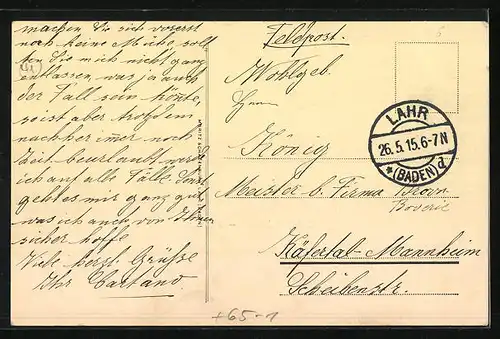 machen Sie sich vorerst
noch keine Mühe, soll-
ten Sie mich nicht ganz
entlassen, was ja auch
der Fall sein könnte,
so ist aber trotzdem
nachher immer noch
Zeit beurlaubt werde
ich auf alle Fälle. Sonst
geht es mir ganz gut
was ich auch von Ihnen
sicher hoffe
Viele herzl. Grüße
Ihr
Feldpost.
Wohlgeb.
Herrn
König
Meister b. Firma Brown
Boverie
Käfertal-Mannheim
Scheibenstr.
LAHR
26.5.15.6-7N
*(BADEN)d
+65-1